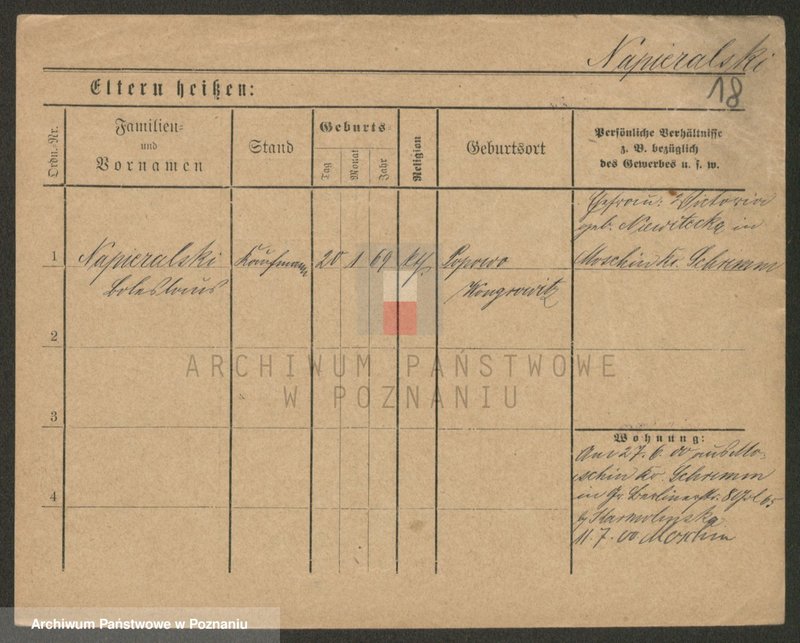 Napieralski
18
Eltern heißen:
Ordn.-Nr.
Familien-
und
Vornamen
Stand
Geburts-
Tag
Monat
Jahr
Religion
Geburtsort
Persönliche Verhältnisse
z. B. bezüglich
des Gewerbes u. s. w.
Ehefrau: Victoria
geb. Nawitecka in
1
Napieralski
Kaufmann
20
1
69
kth.
Popowo
Moschin Kr. Schrimm
Boleslaus
Wongrowitz
2
3
4
Wohnung:
Am 27. 6. 00 aus Mo-
schin Kr. Schrimm
in Gr. Berlinerstr.
11. 7. 00 Moschin
ARCHIWUM PAŃSTWOWE
W POZNANIU
Archiwum Państwowe w Poznaniu